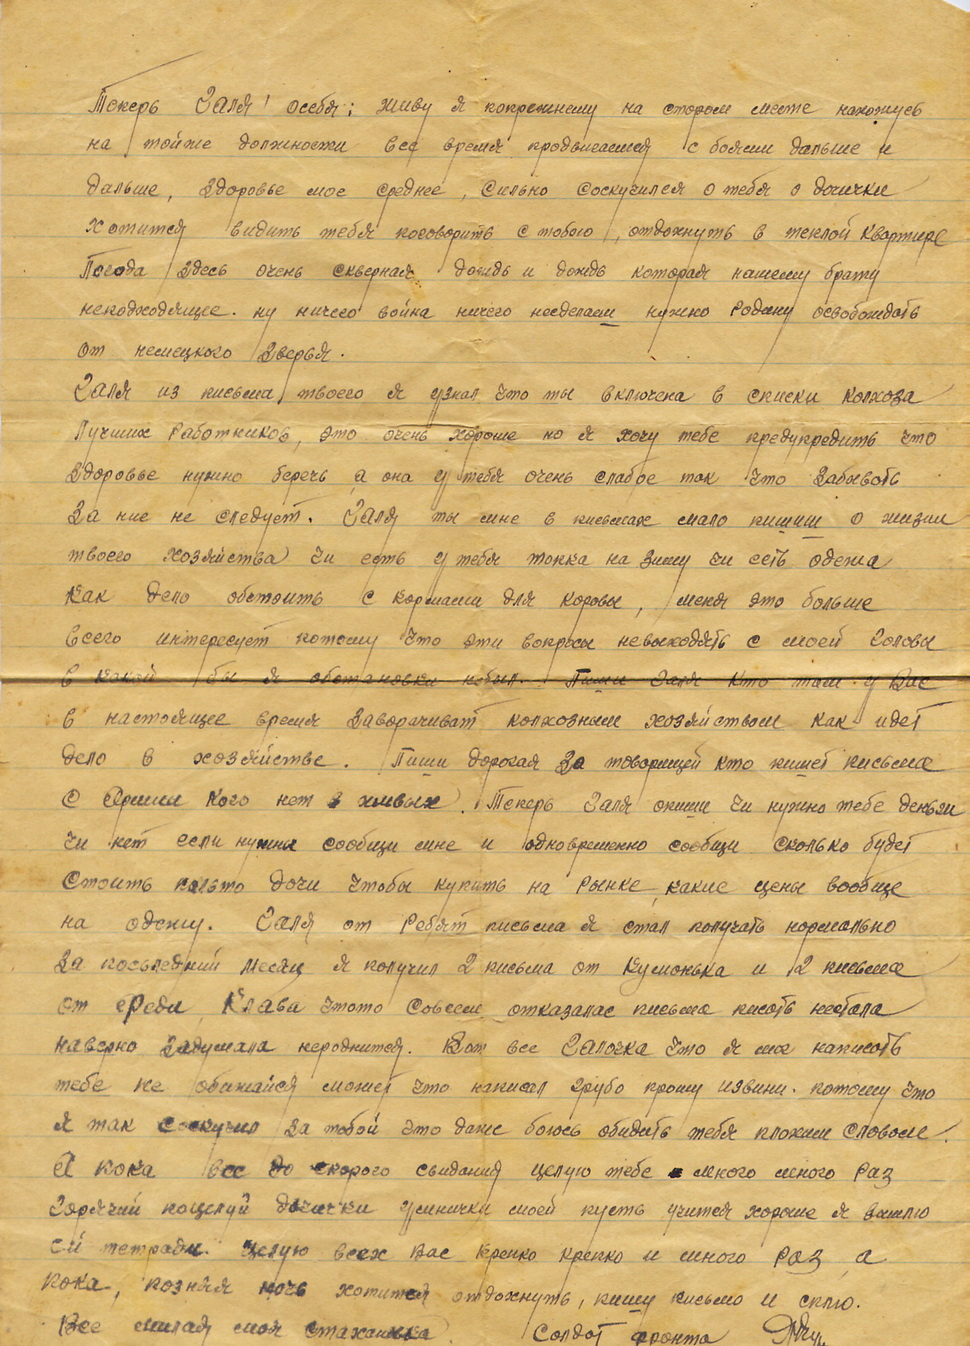 Теперь Галя! осебя; живу я попрежнему на старом месте нахожусь
на тойже должности все время продвигаемся с боями дальше и
дальше, здоровье мое среднее, сильно соскучился о тебя о дочички
хотится видить тебя поговорить с тобою, отдохнуть в теплой квартире
Погода здесь очень скверная дождь и дождь которая нашему брату
неподходящее. ну ничего война ничего несделаеш нужно Родину освобождать
от немецкого зверья.
Галя из письма твоего я узнал что ты включена в списки колхоза
лучших работников, это очень хороше но я хочу тебе предупредить что
здоровье нужно беречь, а она у тебя очень слабое так что забывать
за ние не следует. Галя ты мне в письмах мало пишиш о жизни
твоего хозяйства чи есть у тебя топка на зиму чи есть одежа
как дело обстоить с кормами для коровы, меня это больше
всего интересует потому что эти вопросы невыходять с моей головы
в какой бы я обстановки небыл. Пиши Галя кто там у Вас
в настоящее время заворачиват колхозным хозяйством как идет
дело в хозяйстве. Пиши дорогая за товарищей кто пишет письма
с Армии кого нет в живых. Теперь Галя опиши чи нужно тебе деньги
чи нет если нужны сообщи мне и одновременно сообщи сколько будет
стоить пальто дочи чтобы купить на рынке, какие цены вообще
на одежу. Галя от Ребят письма я стал получать нормально
за последний месяц я получил 2 письма от Кумонька и 2 письма
от Клава чтото совсем отказалас письма писать нестала
наверно задумала нероднится. Вот все Галочка что я мог написать
тебе не обижайся может что написал грубо прошу извини. потому что
я так соскучил за тобой что даже боюсь обидить тебя плохим словом.
А пока все до скорого свидания целую тебе много много раз
Горячий поцелуй дочички умнички моей пусть учится хороше я вышлю
ей тетради. целую всех Вас крепко крепко и много раз а
пока, позняя ночь хотится отдохнуть, пишу письмо и сплю.
Все милая моя стахановка Солдат фронта